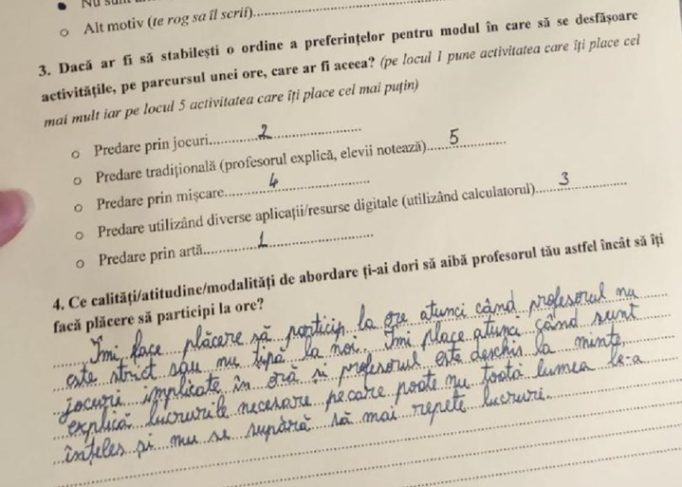 Nu sunt
○ Alt motiv (te rog sa îl scrii)
3. Dacă ar fi să stabilești o ordine a preferințelor pentru modul în care să se desfășoare
activitățile, pe parcursul unei ore, care ar fi aceea? (pe locul 1 pune activitatea care îți place cel
mai mult iar pe locul 5 activitatea care îți place cel mai puțin)
○ Predare prin jocuri 2
○ Predare tradițională (profesorul explică, elevii notează) 5
○ Predare prin mișcare 4
○ Predare utilizând diverse aplicații/resurse digitale (utilizând calculatorul) 3
○ Predare prin artă 1
4. Ce calități/atitudine/modalități de abordare ți-ai dori să aibă profesorul tău astfel încât să îți
facă plăcere să participi la ore?
Îmi face plăcere să particip la ore atunci când profesorul nu
este strict sau nu țipă la noi. Îmi place atunci când sunt
jocuri implicate în oră și profesorul este deschis la minte,
explică lucrurile necesare pe care poate nu toată lumea le-a
înțeles și nu se supără să mai repete lucruri.